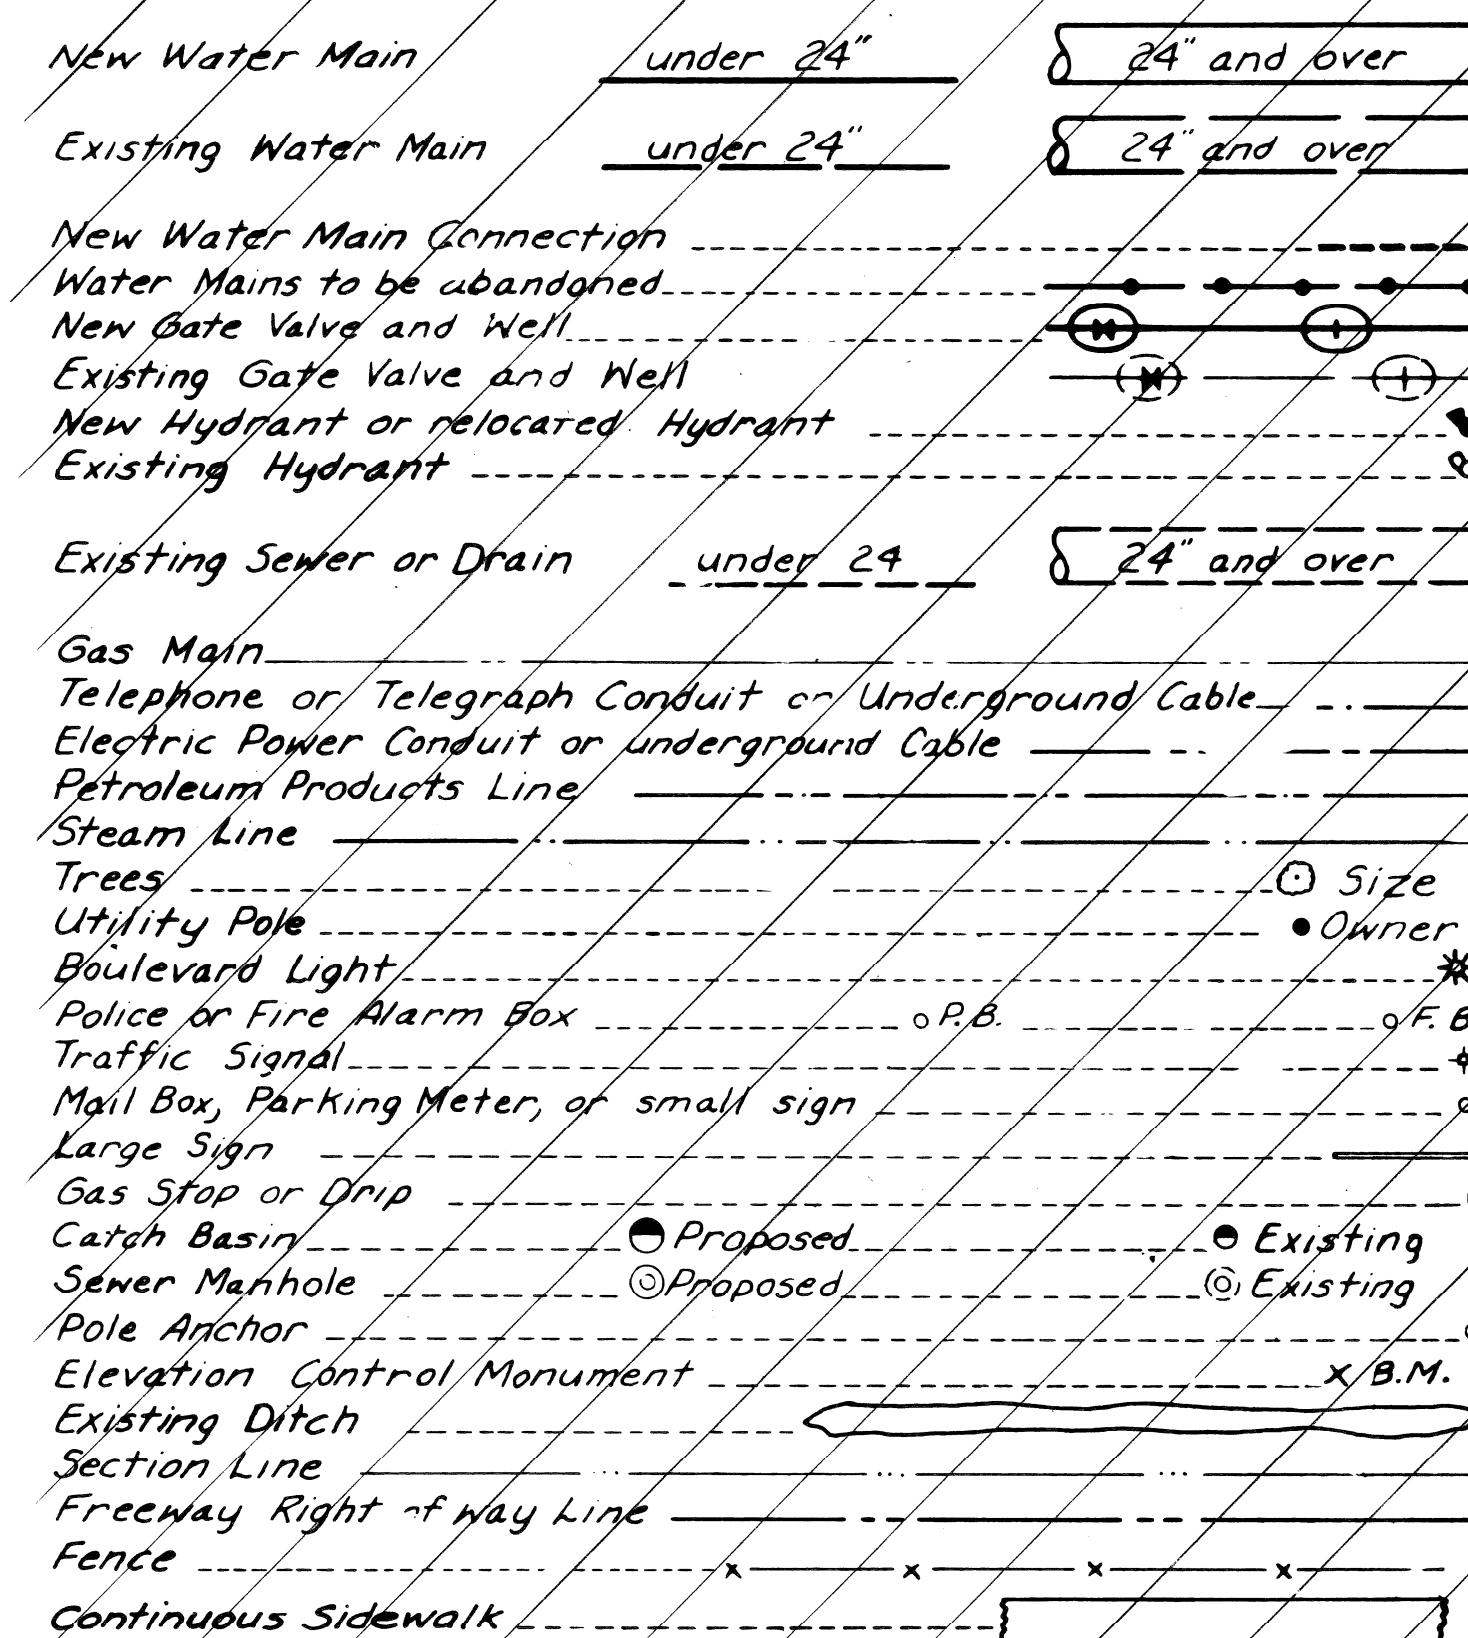 New Water Main under 24" 24" and over
Existing Water Main under 24" 24" and over
New Water Main Connection
Water Mains to be abandoned
New Gate Valve and Well
Existing Gate Valve and Well
New Hydrant or relocated Hydrant
Existing Hydrant
Existing Sewer or Drain under 24 24" and over
Gas Main
Telephone or Telegraph Conduit or Underground Cable
Electric Power Conduit or underground Cable
Petroleum Products Line
Steam Line
Trees Size
Utility Pole Owner
Boulevard Light
Police or Fire Alarm Box P.B. F.B
Traffic Signal
Mail Box, Parking Meter, or small sign
Large Sign
Gas Stop or Drip
Catch Basin Proposed Existing
Sewer Manhole Proposed Existing
Pole Anchor
Elevation Control Monument x B.M.
Existing Ditch
Section Line
Freeway Right of Way Line
Fence x x x x
Continuous Sidewalk